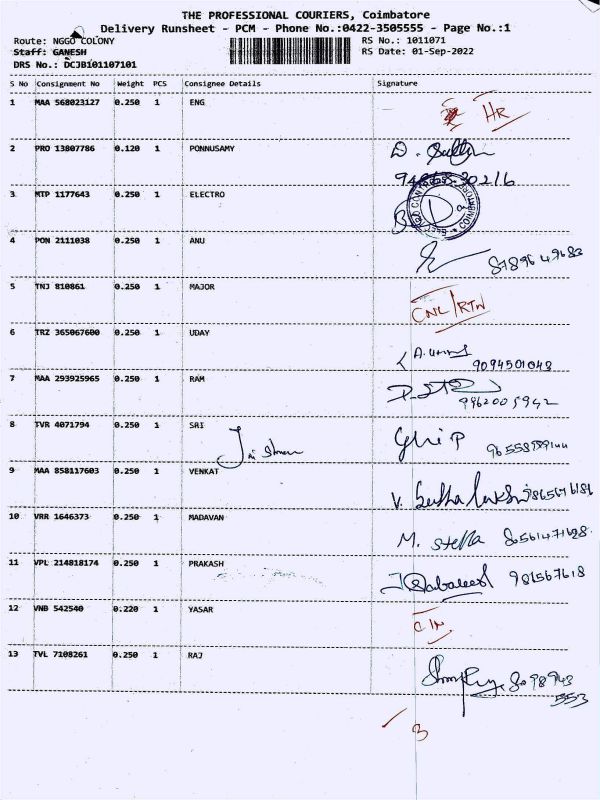 THE PROFESSIONAL COURIERS, Coimbatore
Delivery Runsheet - PCM - Phone No.:0422-3505555 - Page No.:1
Route: NGGO COLONY
RS No.: 1011071
Staff: GANESH
RS Date: 01-Sep-2022
DRS No.: DCJB101107101
S No Consignment No Weight PCS Consignee Details Signature
1 MAA 568023127 0.250 1 ENG HR
2 PRO 13807786 0.120 1 PONNUSAMY
3 MTP 1177643 0.250 1 ELECTRO
4 PON 2111038 0.250 1 ANU
8789649683
5 TNJ 810861 0.250 1 MAJOR CNL/RTN
6 TRZ 365067600 0.250 1 UDAY
9094501048
7 MAA 293925965 0.250 1 RAM
9962005942
8 TVR 4071794 0.250 1 SRI
9 MAA 858117603 0.250 1 VENKAT
10 VRR 1646373 0.250 1 MADAVAN
M. Stella 80561471628
11 VPL 214818174 0.250 1 PRAKASH
981567618
12 VNB 542540 0.220 1 YASAR
13 TVL 7108261 0.250 1 RAJ
8098943
553
3